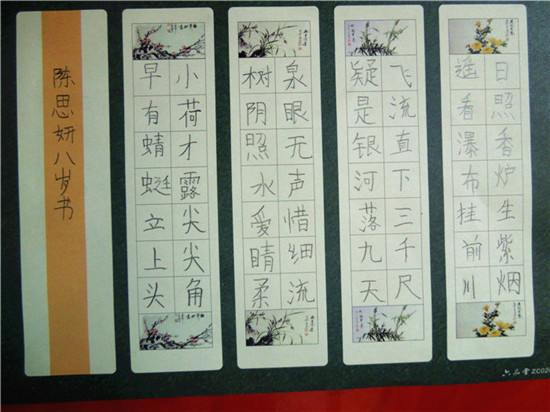 日照香炉生紫烟
遥看瀑布挂前川
飞流直下三千尺
疑是银河落九天
泉眼无声惜细流
树阴照水爱睛柔
小荷才露尖尖角
早有蜻蜓立上头
陈思妍八岁书
六品堂